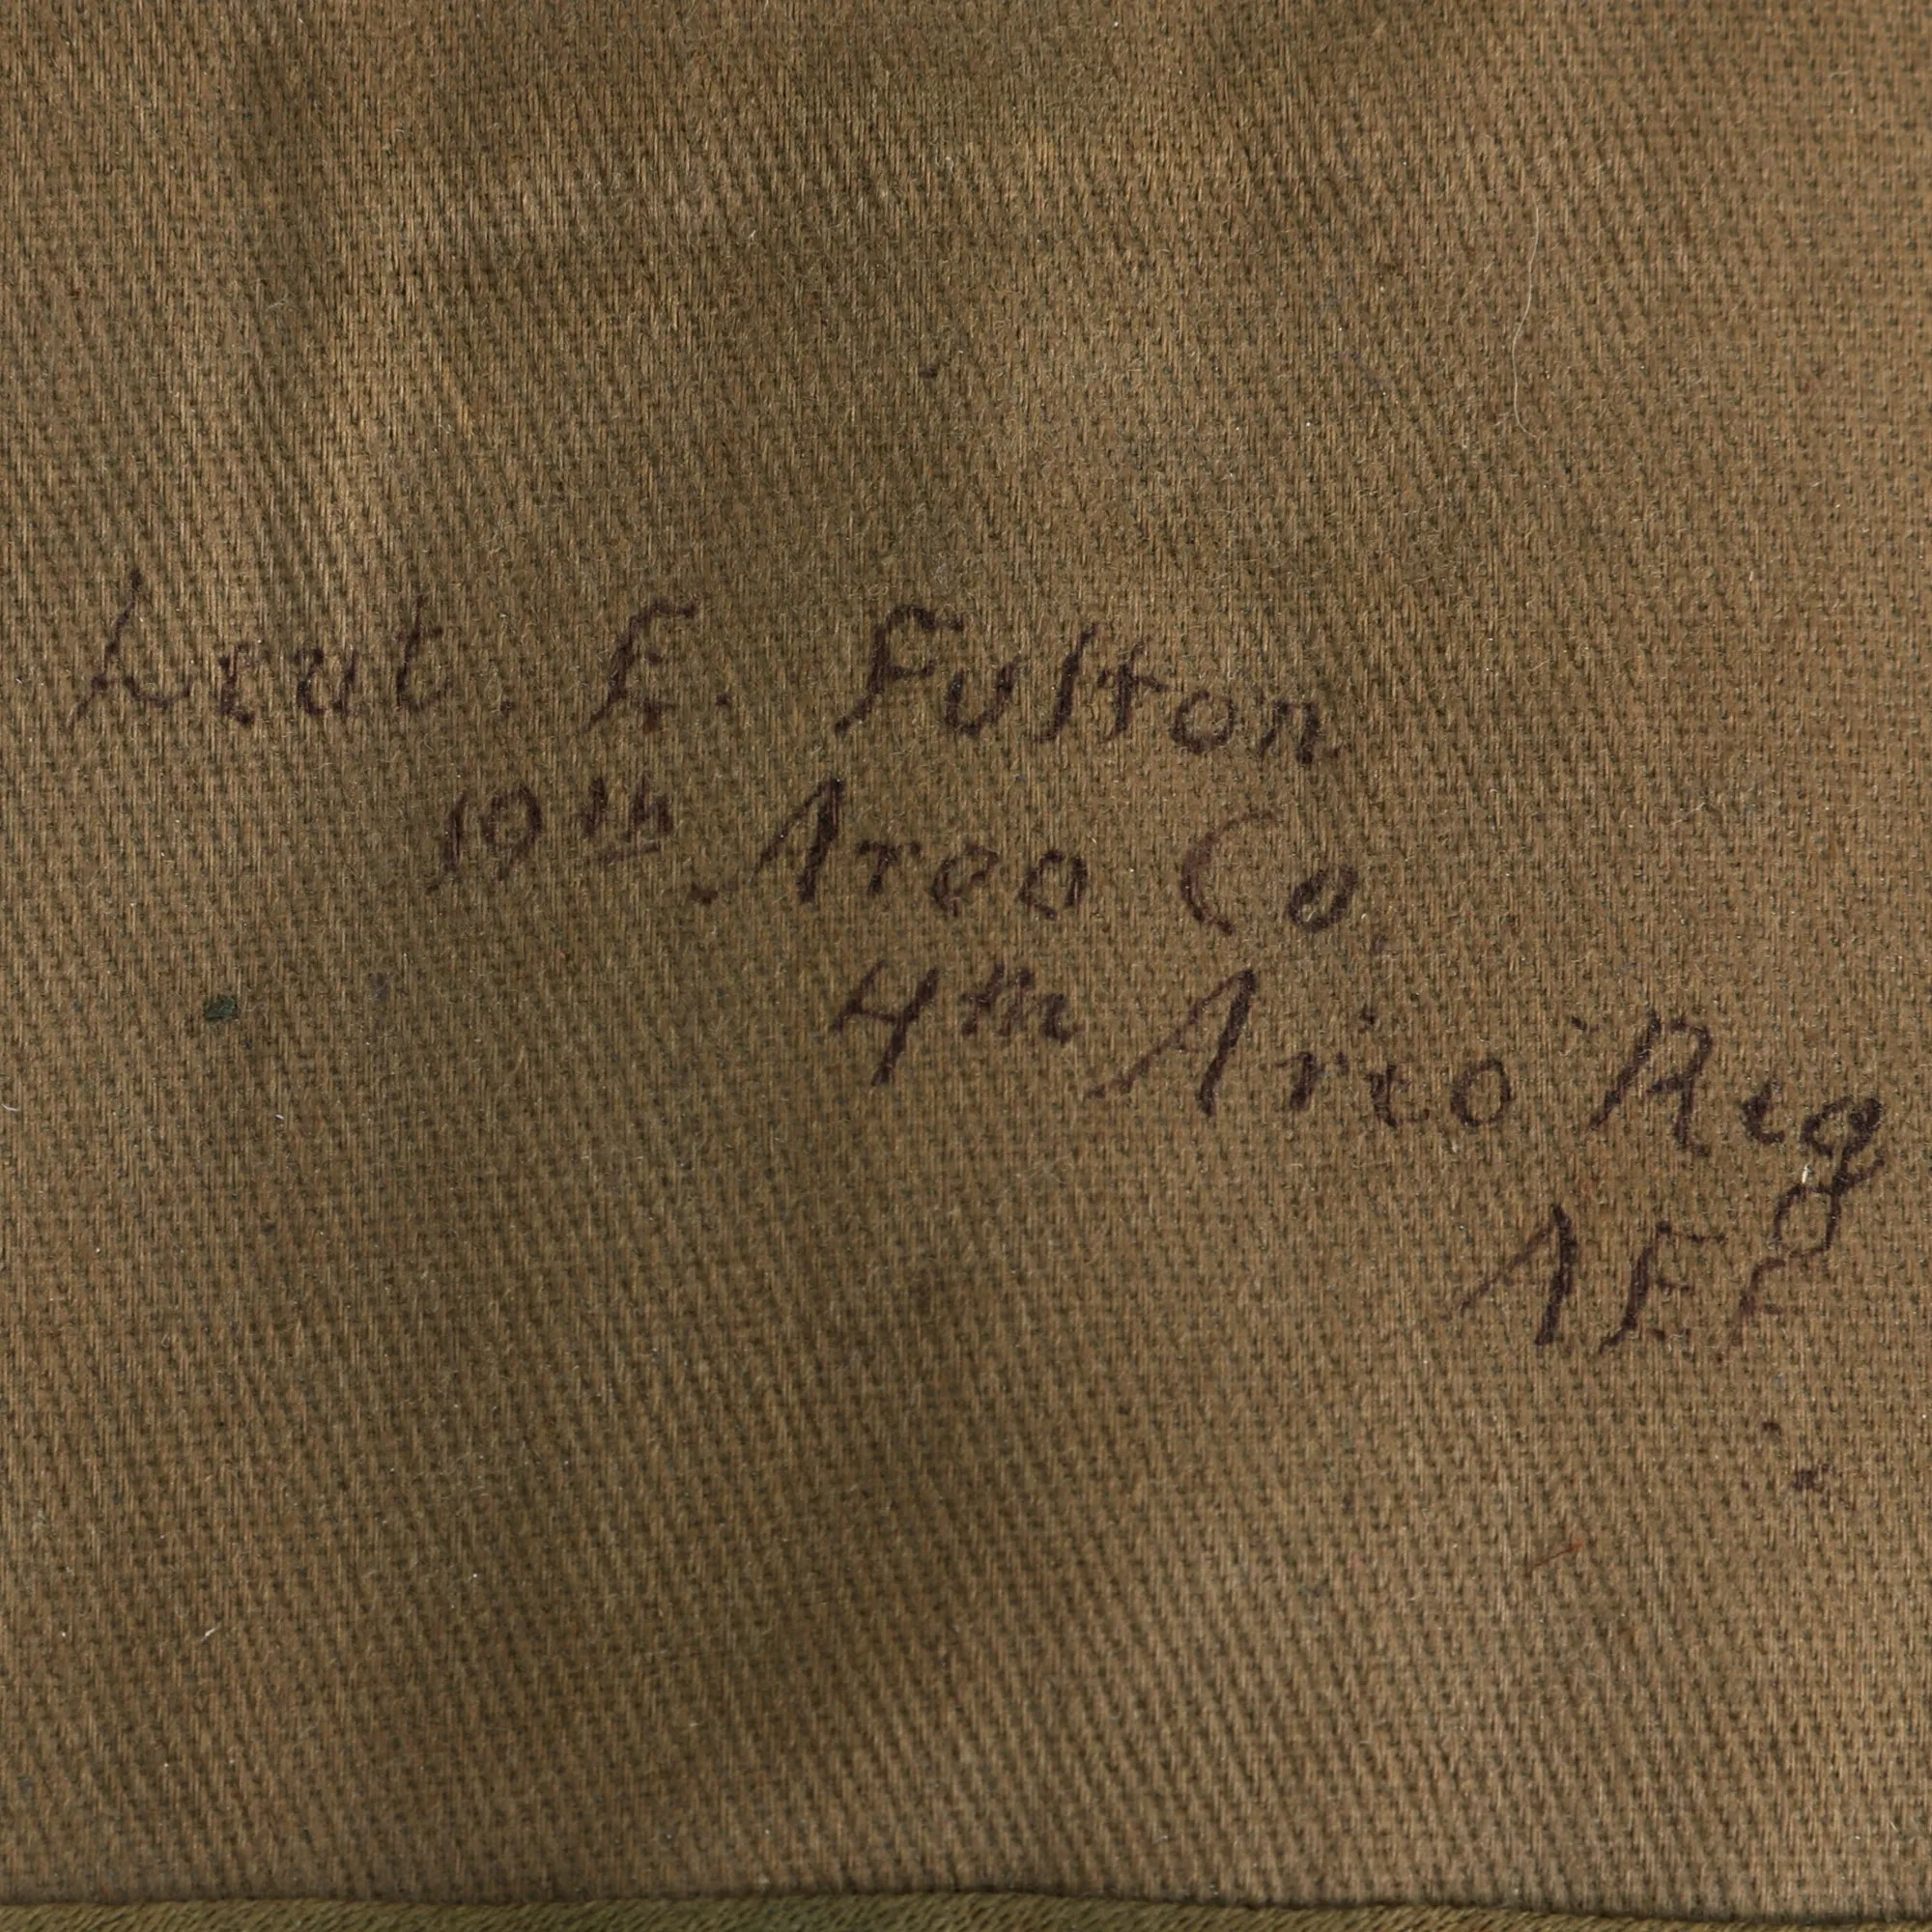 Leut. E. Fulton
19th Areo Co.
4th Areo Reg
AEF